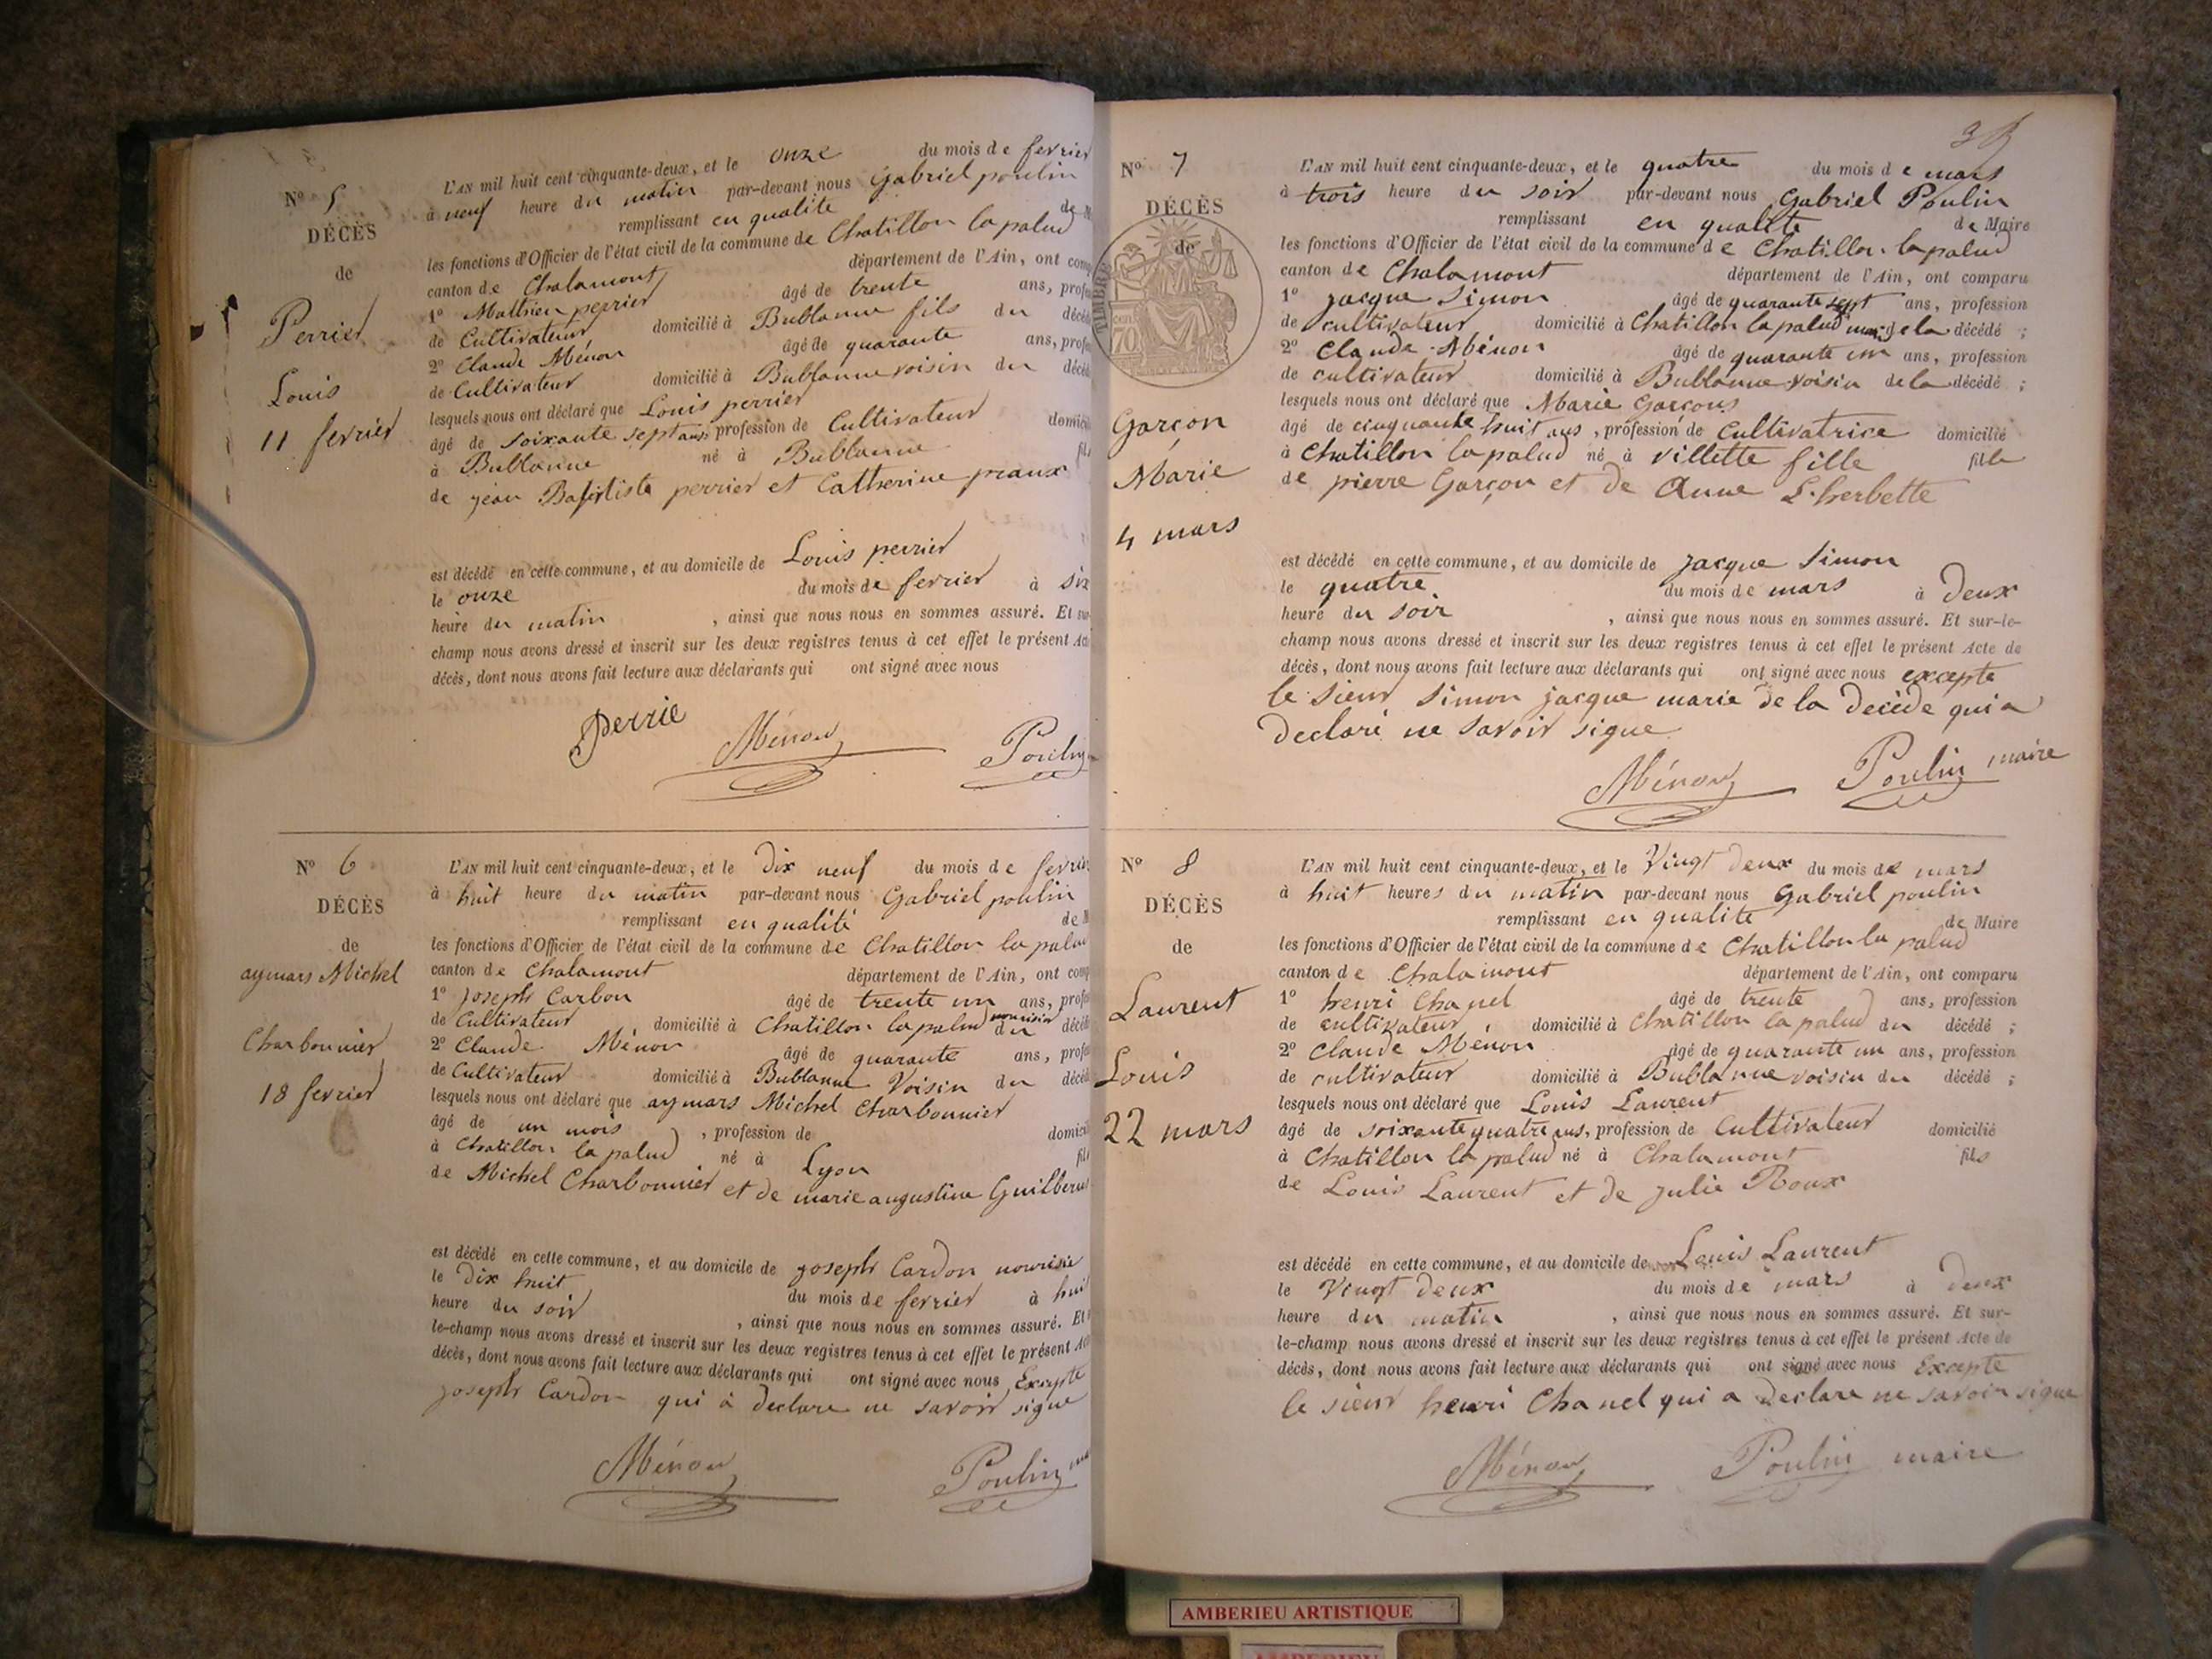 N° 5
DÉCÈS
de
Perrier
Louis
11 fevrier
L'AN mil huit cent cinquante-deux, et le onze du mois de fevrier
à neuf heure du matin par-devant nous Gabriel poulin
remplissant en qualite de
les fonctions d'Officier de l'état civil de la commune de Chatillon la palud
canton de Chalamont département de l'Ain, ont
1° Mathieu perrier âgé de trente ans,
de Cultivateur domicilié à Bublanne fils du
2° Claude Ménon âgé de quarante ans,
de Cultivateur domicilié à Bublanne voisin du
lesquels nous ont déclaré que Louis perrier
âgé de soixante sept ans profession de Cultivateur
à Bublanne né à Bublanne
de jean Baptiste perrier et Catherine praux
est décédé en cette commune, et au domicile de Louis perrier
le onze du mois de fevrier à six
heure du matin , ainsi que nous nous en sommes assuré. Et
champ nous avons dressé et inscrit sur les deux registres tenus à cet effet le présent
décès, dont nous avons fait lecture aux déclarants qui ont signé avec nous
Perrie Ménon Poulin
N° 6
DÉCÈS
de
aymars Michel
Charbonnier
18 fevrier
L'AN mil huit cent cinquante-deux, et le Dix neuf du mois de
à huit heure du matin par-devant nous Gabriel poulin
remplissant en qualité de
les fonctions d'Officier de l'état civil de la commune de Chatillon la palud
canton de Chalamont département de l'Ain, ont
1° joseph Carbon âgé de trente un ans,
de Cultivateur domicilié à Chatillon la palud nourisier du
2° Claude Ménon âgé de quarante ans,
de Cultivateur domicilié à Bublanne Voisin du
lesquels nous ont déclaré que aymars Michel Charbonnier
âgé de un mois , profession de
à Chatillon la palud né à Lyon
de Michel Charbonnier et de marie augustine
est décédé en cette commune, et au domicile de joseph Cardon
le Dix huit du mois de fevrier à
heure du soir , ainsi que nous nous en sommes assuré. Et
le-champ nous avons dressé et inscrit sur les deux registres tenus à cet effet le présent
décès, dont nous avons fait lecture aux déclarants qui ont signé avec nous Excepte
joseph Cardon qui à declare ne savoir signe
Ménon Poulin
N° 7
DÉCÈS
de
TIMBRE
Garcon
Marie
4 mars
L'AN mil huit cent cinquante-deux, et le quatre du mois de mars
à trois heure du soir par-devant nous Gabriel Poulin
remplissant en qualite de Maire
les fonctions d'Officier de l'état civil de la commune de Chatillon la palud
canton de Chalamont département de l'Ain, ont comparu
1° jacque Simon âgé de quarante sept ans, profession
de cultivateur domicilié à Chatillon la palud mari de la décédé ;
2° Claude Ménon âgé de quarante un ans, profession
de cultivateur domicilié à Bublanne voisin de la décédé ;
lesquels nous ont déclaré que Marie Garcons
âgé de cinquante huit ans , profession de Cultivatrice domicilié
à Chatillon la palud né à Villette fille fille
de pierre Garçon et de Anne L'herbette
est décédé en cette commune, et au domicile de jacque Simon
le quatre du mois de mars à Deux
heure du soir , ainsi que nous nous en sommes assuré. Et sur-le-
champ nous avons dressé et inscrit sur les deux registres tenus à cet effet le présent Acte de
décès, dont nous avons fait lecture aux déclarants qui ont signé avec nous excepte
le sieur Simon jacque marie de la decede qui a
declaré ne savoir signe
Ménon Poulin maire
N° 8
DÉCÈS
de
Laurent
Louis
22 mars
L'AN mil huit cent cinquante-deux, et le Vingt Deux du mois de mars
à huit heures du matin par-devant nous Gabriel poulin
remplissant en qualite de Maire
les fonctions d'Officier de l'état civil de la commune de Chatillon la palud
canton de Chalamont département de l'Ain, ont comparu
1° henri Chanel âgé de trente ans, profession
de cultivateur domicilié à Chatillon la palud du décédé ;
2° Claude Menon âgé de quarante un ans, profession
de cultivateur domicilié à Bublanne voisin du décédé ;
lesquels nous ont déclaré que Louis Laurent
âgé de soixante quatre ans, profession de Cultivateur domicilié
à Chatillon la palud né à Chalamont fils
de Louis Laurent et de julie Roux
est décédé en cette commune, et au domicile de Louis Laurent
le Vingt Deux du mois de mars à Deux
heure du matin , ainsi que nous nous en sommes assuré. Et sur-
le-champ nous avons dressé et inscrit sur les deux registres tenus à cet effet le présent Acte de
décès, dont nous avons fait lecture aux déclarants qui ont signé avec nous Excepte
le sieur henri Chanel qui a declare ne savoir signe
Ménon Poulin maire
AMBERIEU ARTISTIQUE